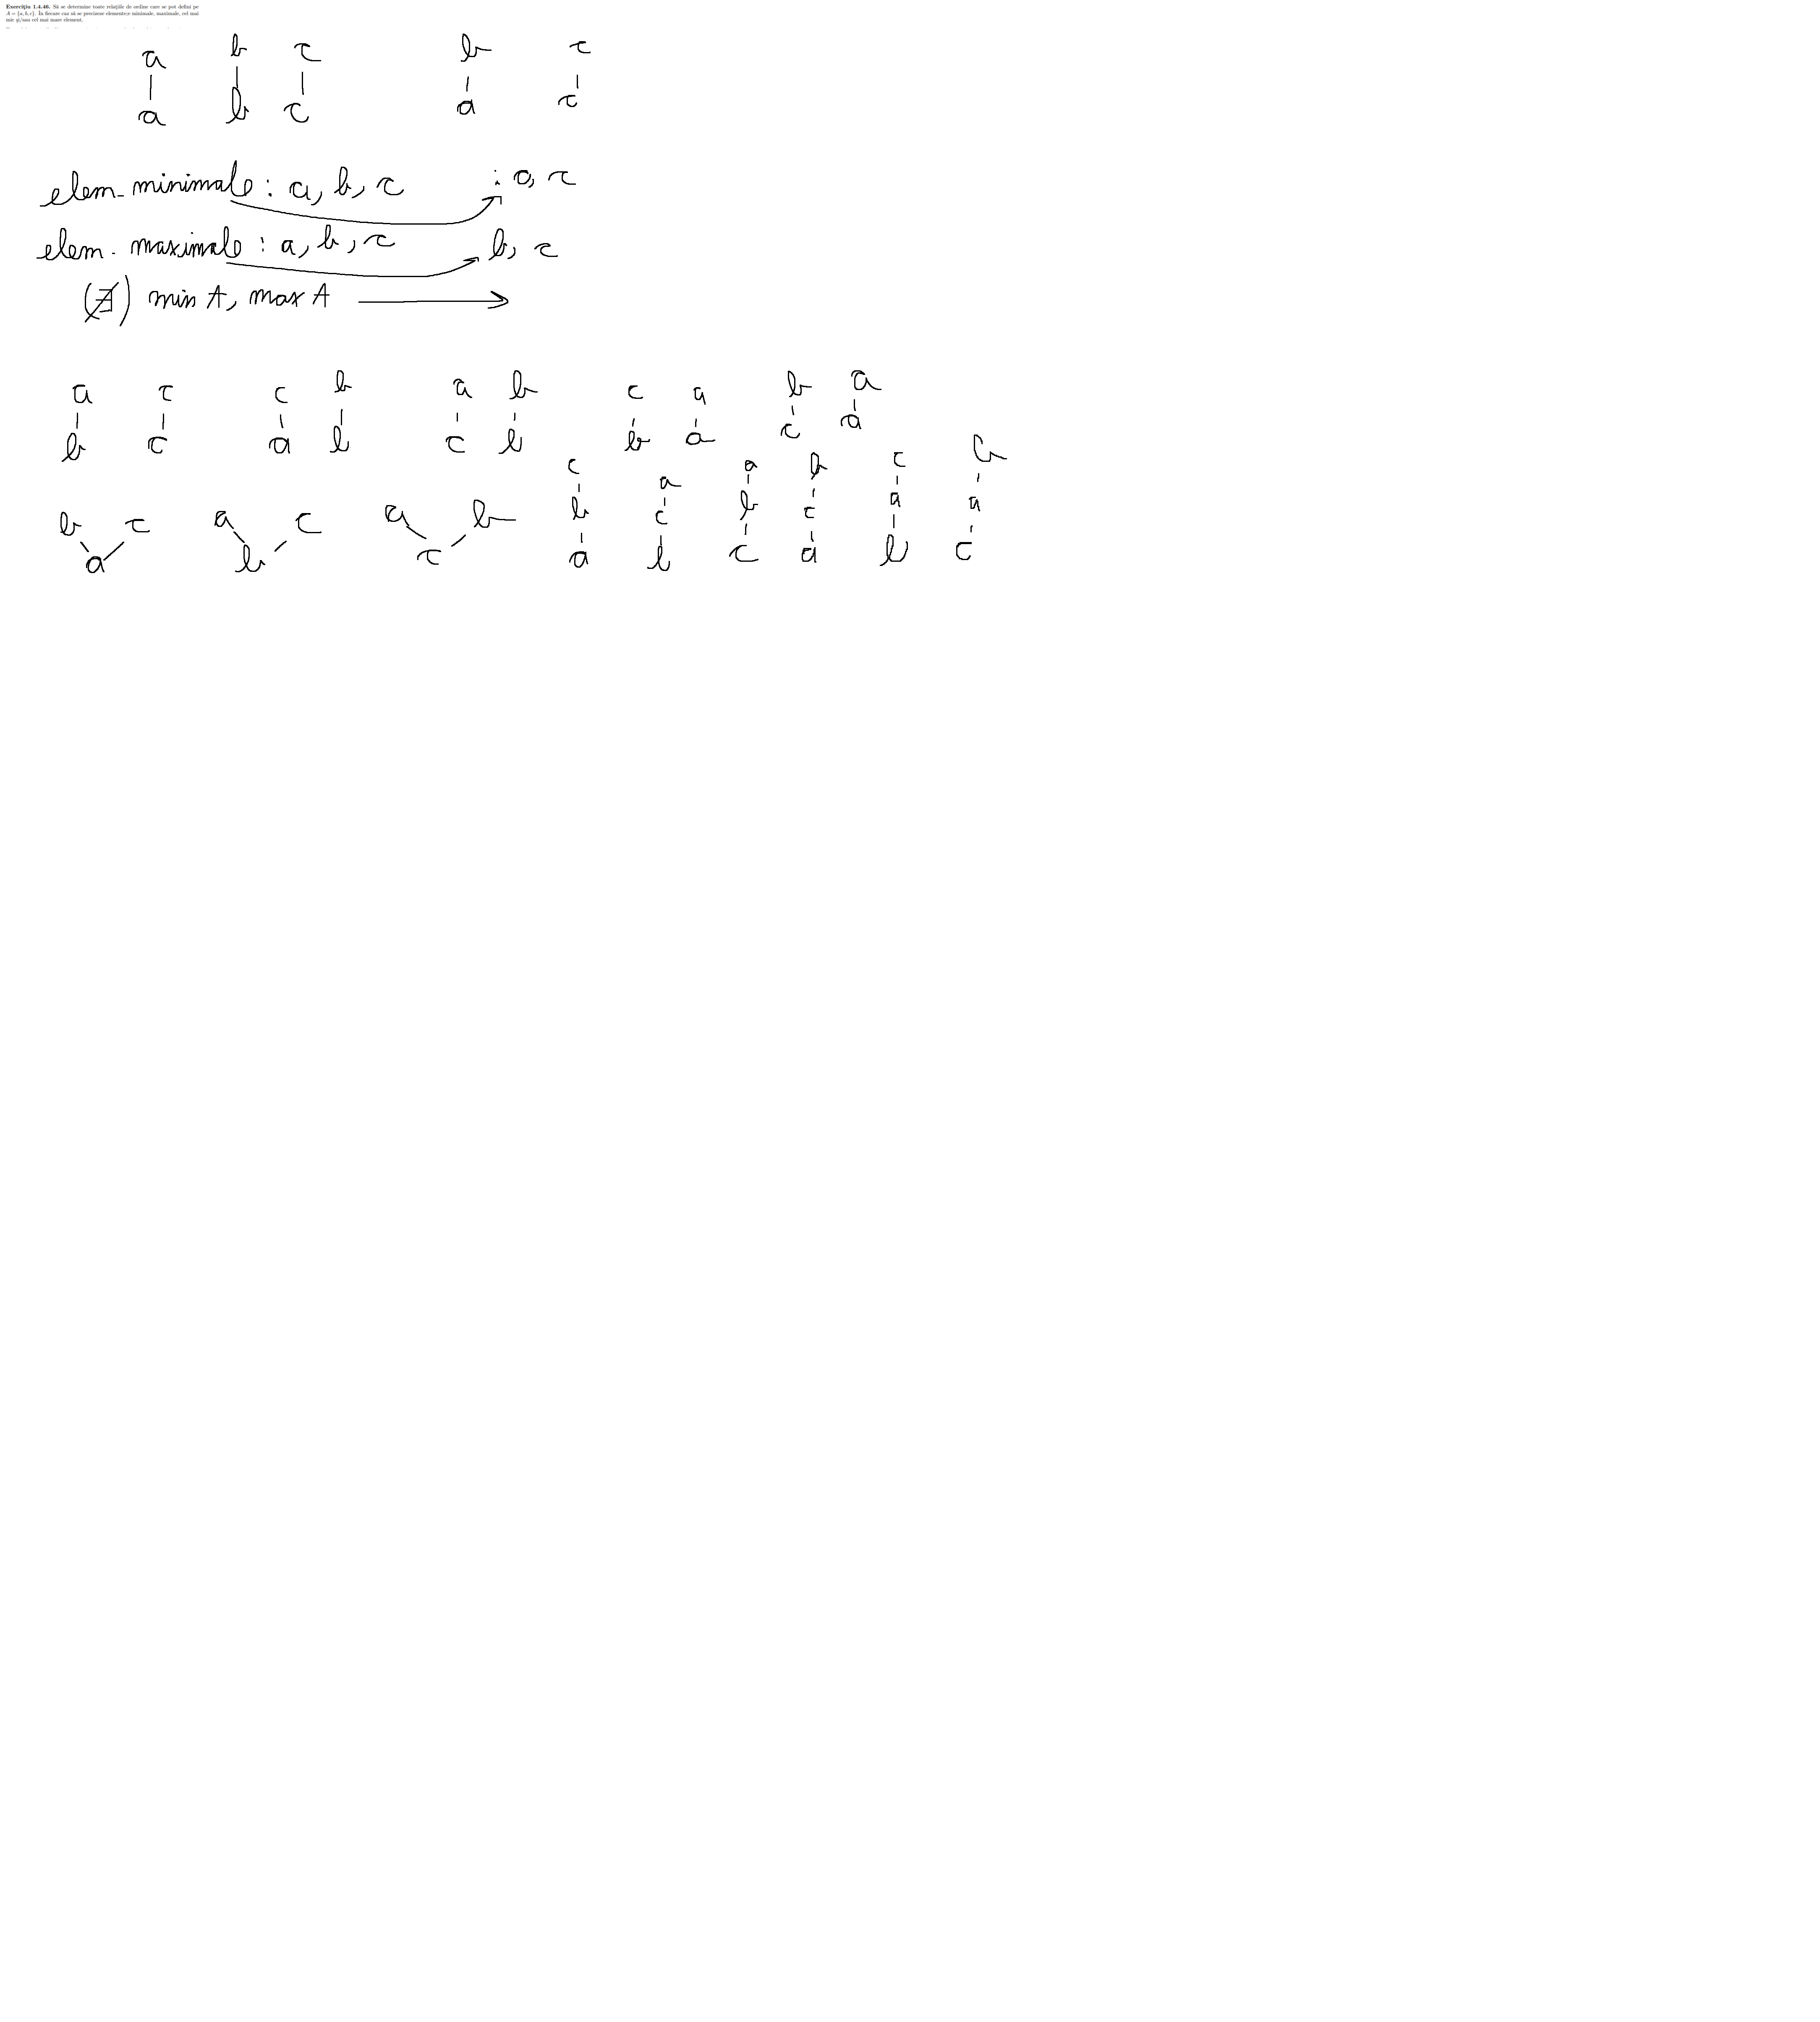 Exercițiu 1.4.46. Să se determine toate relațiile de ordine care se pot defini pe
A = {a, b, c}. În fiecare caz să se precizeze elementele minimale, maximale, cel mai
mic și/sau cel mai mare element.
a b c b c
a b c a c
elem. minimale : a, b, c : a, c
elem. maximale : a, b, c b, c
(∄) min A, max A
a c c b a b c a b a
b c a b c b b a c a
c a a b c b
b c b c a a
a b c a b c
b c a c a b
a b c